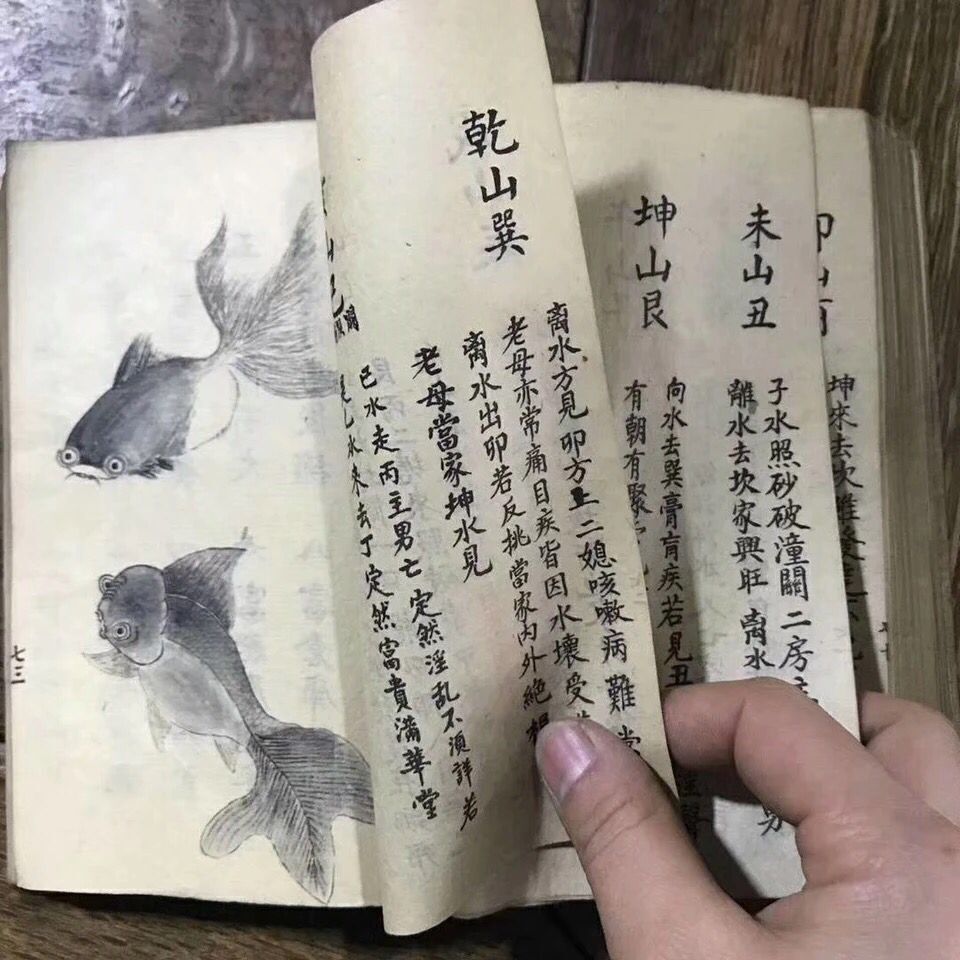 坤來去坎離發
未山丑
子水照砂破潼關 二房
離水去坎家興旺 离水
坤山艮
向水去巽膏肓疾若見丑
有朝有聚
乾山巽
离水方見卯方上二媳咳嗽病難當
老母亦常痛目疾皆因水壞受
离水出卯若反挑當家內外絕
老母當家坤水見
已水走丙主男亡 定然淫乱不須詳若
水來去丁定然富貴滿華堂
七三